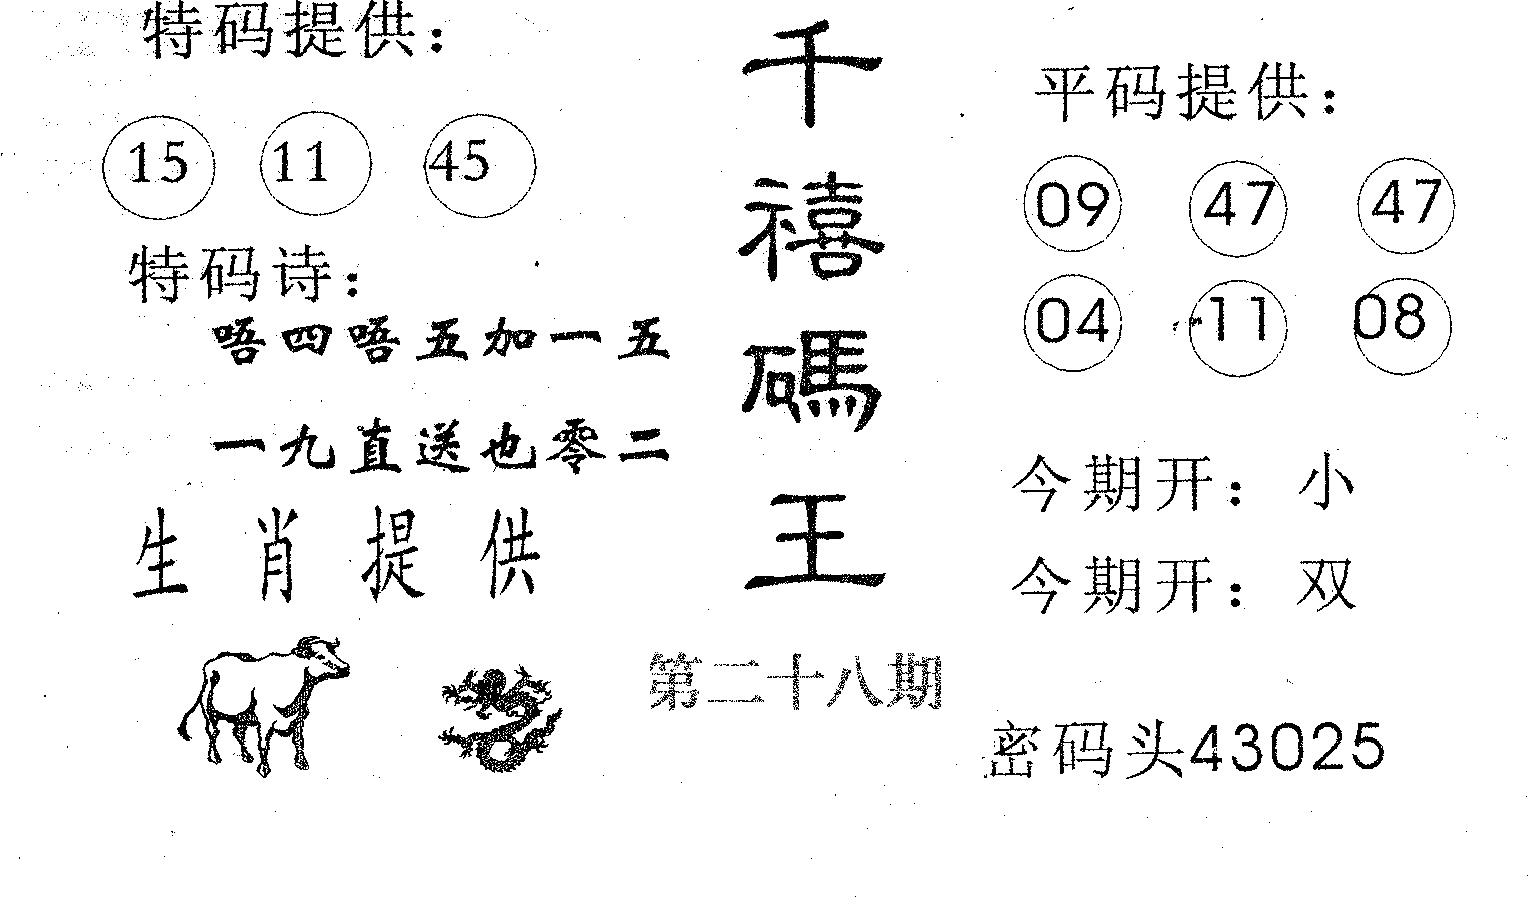 特码提供：
15 11 45
特码诗：
唔四唔五加一五
一九直送也零二
生肖提供
千禧碼王
第二十八期
平码提供：
09 47 47
04 11 08
今期开：小
今期开：双
密码头43025